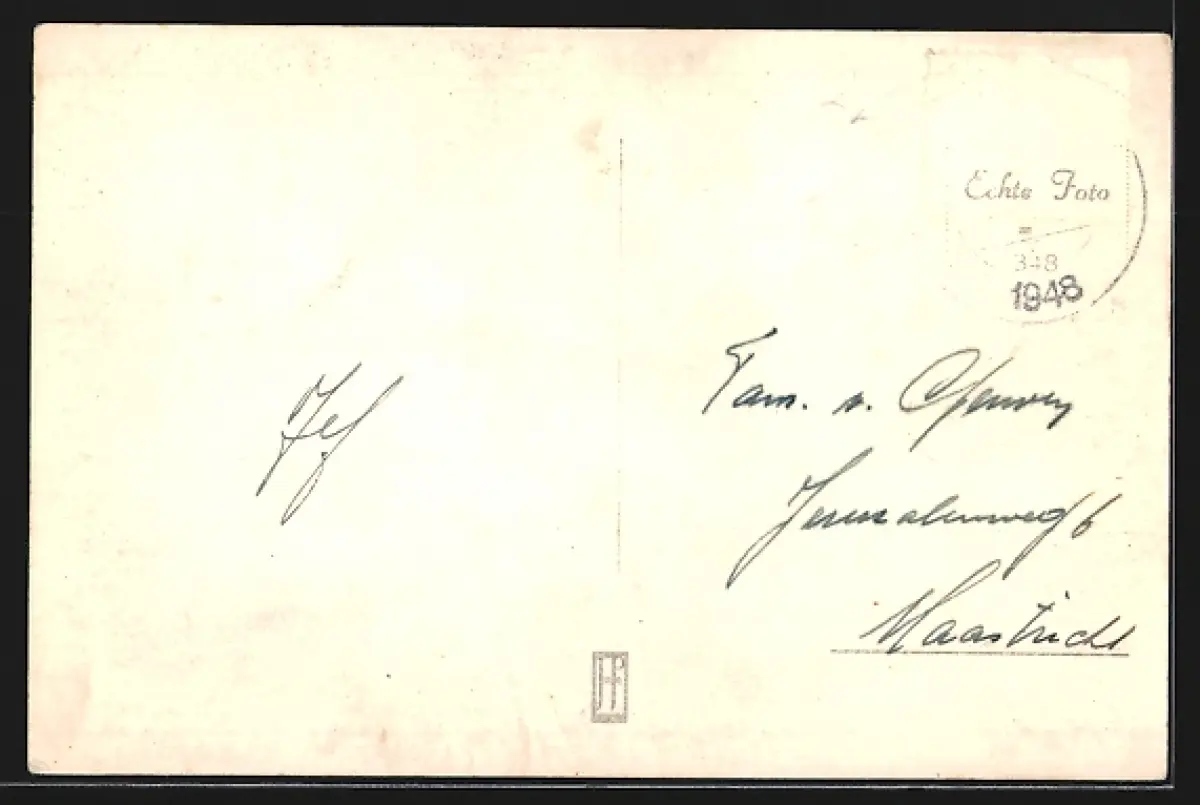 Echte Foto
=
348
1948
Jef
Fam. v. Opamvey
Jerusalemweg 6
Maastricht